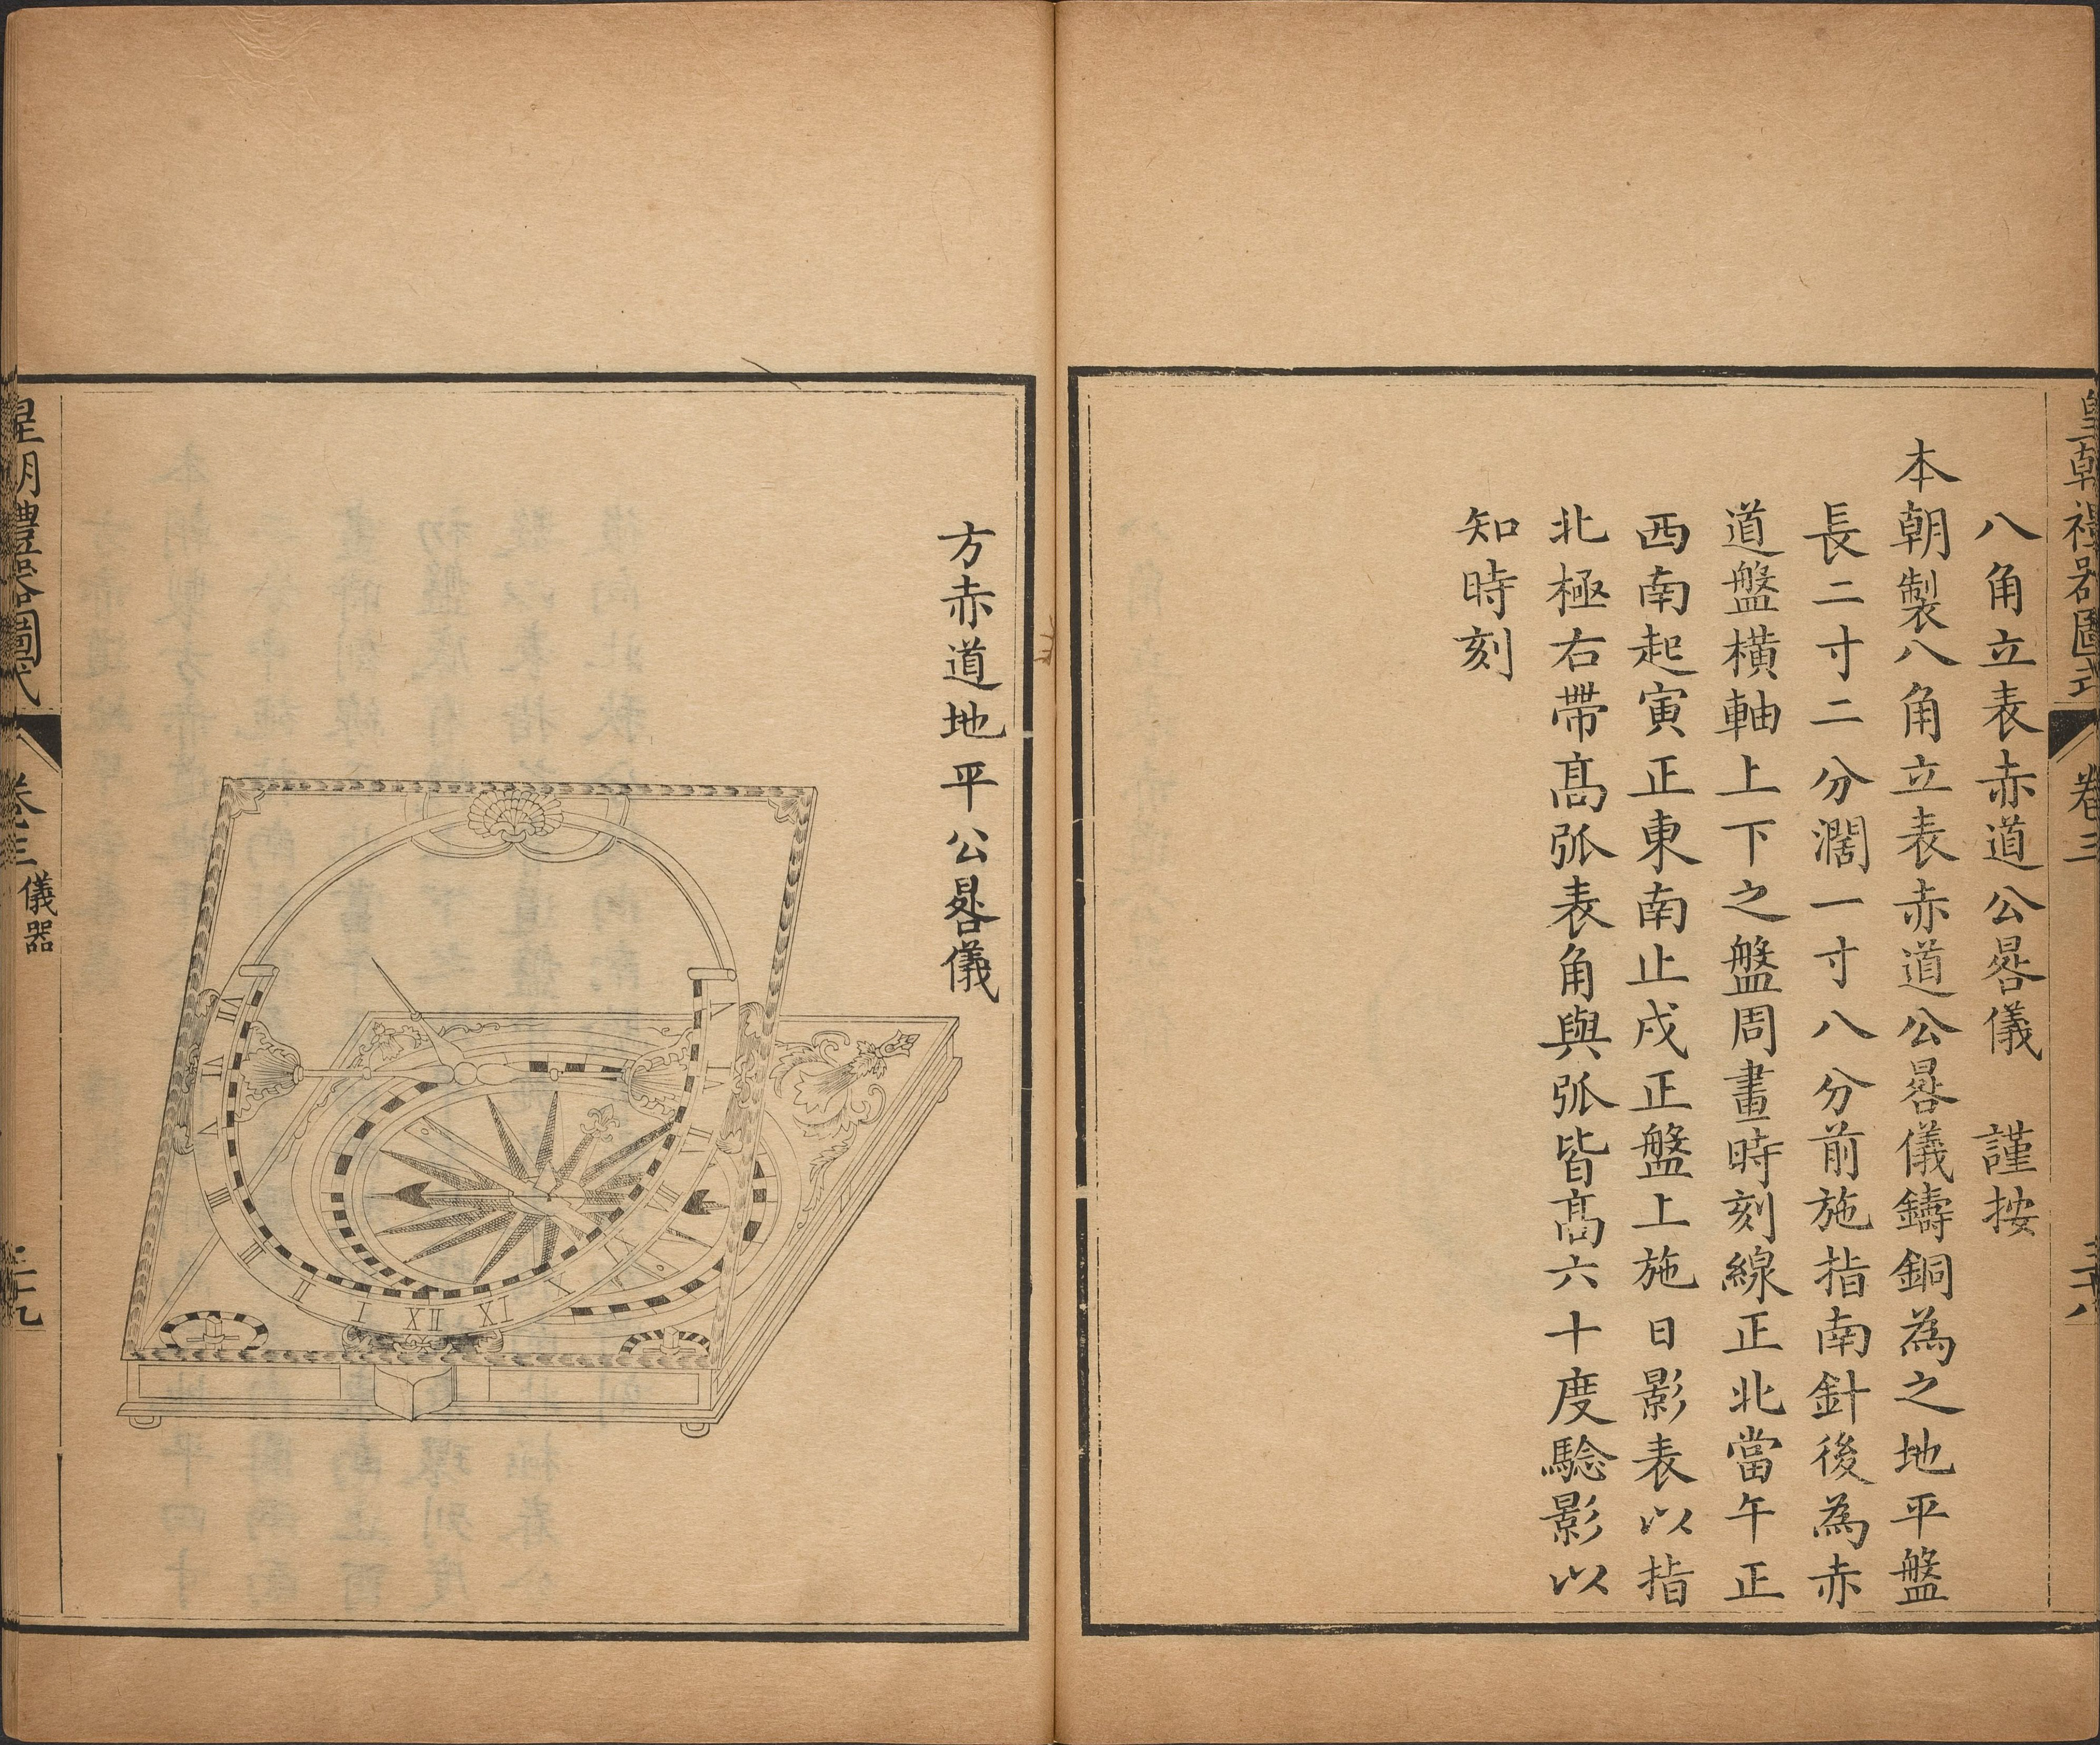 皇朝禮器圖式
卷三
三十八
八角立表赤道公晷儀　謹按
本朝製八角立表赤道公晷儀鑄銅為之地平盤
長二寸二分濶一寸八分前施指南針後為赤
道盤橫軸上下之盤周畫時刻線正北當午正
西南起寅正東南止戌正盤上施日影表以指
北極右帶髙弧表角與弧皆髙六十度驗影以
知時刻
方赤道地平公晷儀
皇朝禮器圖式
卷三
儀器
三十九